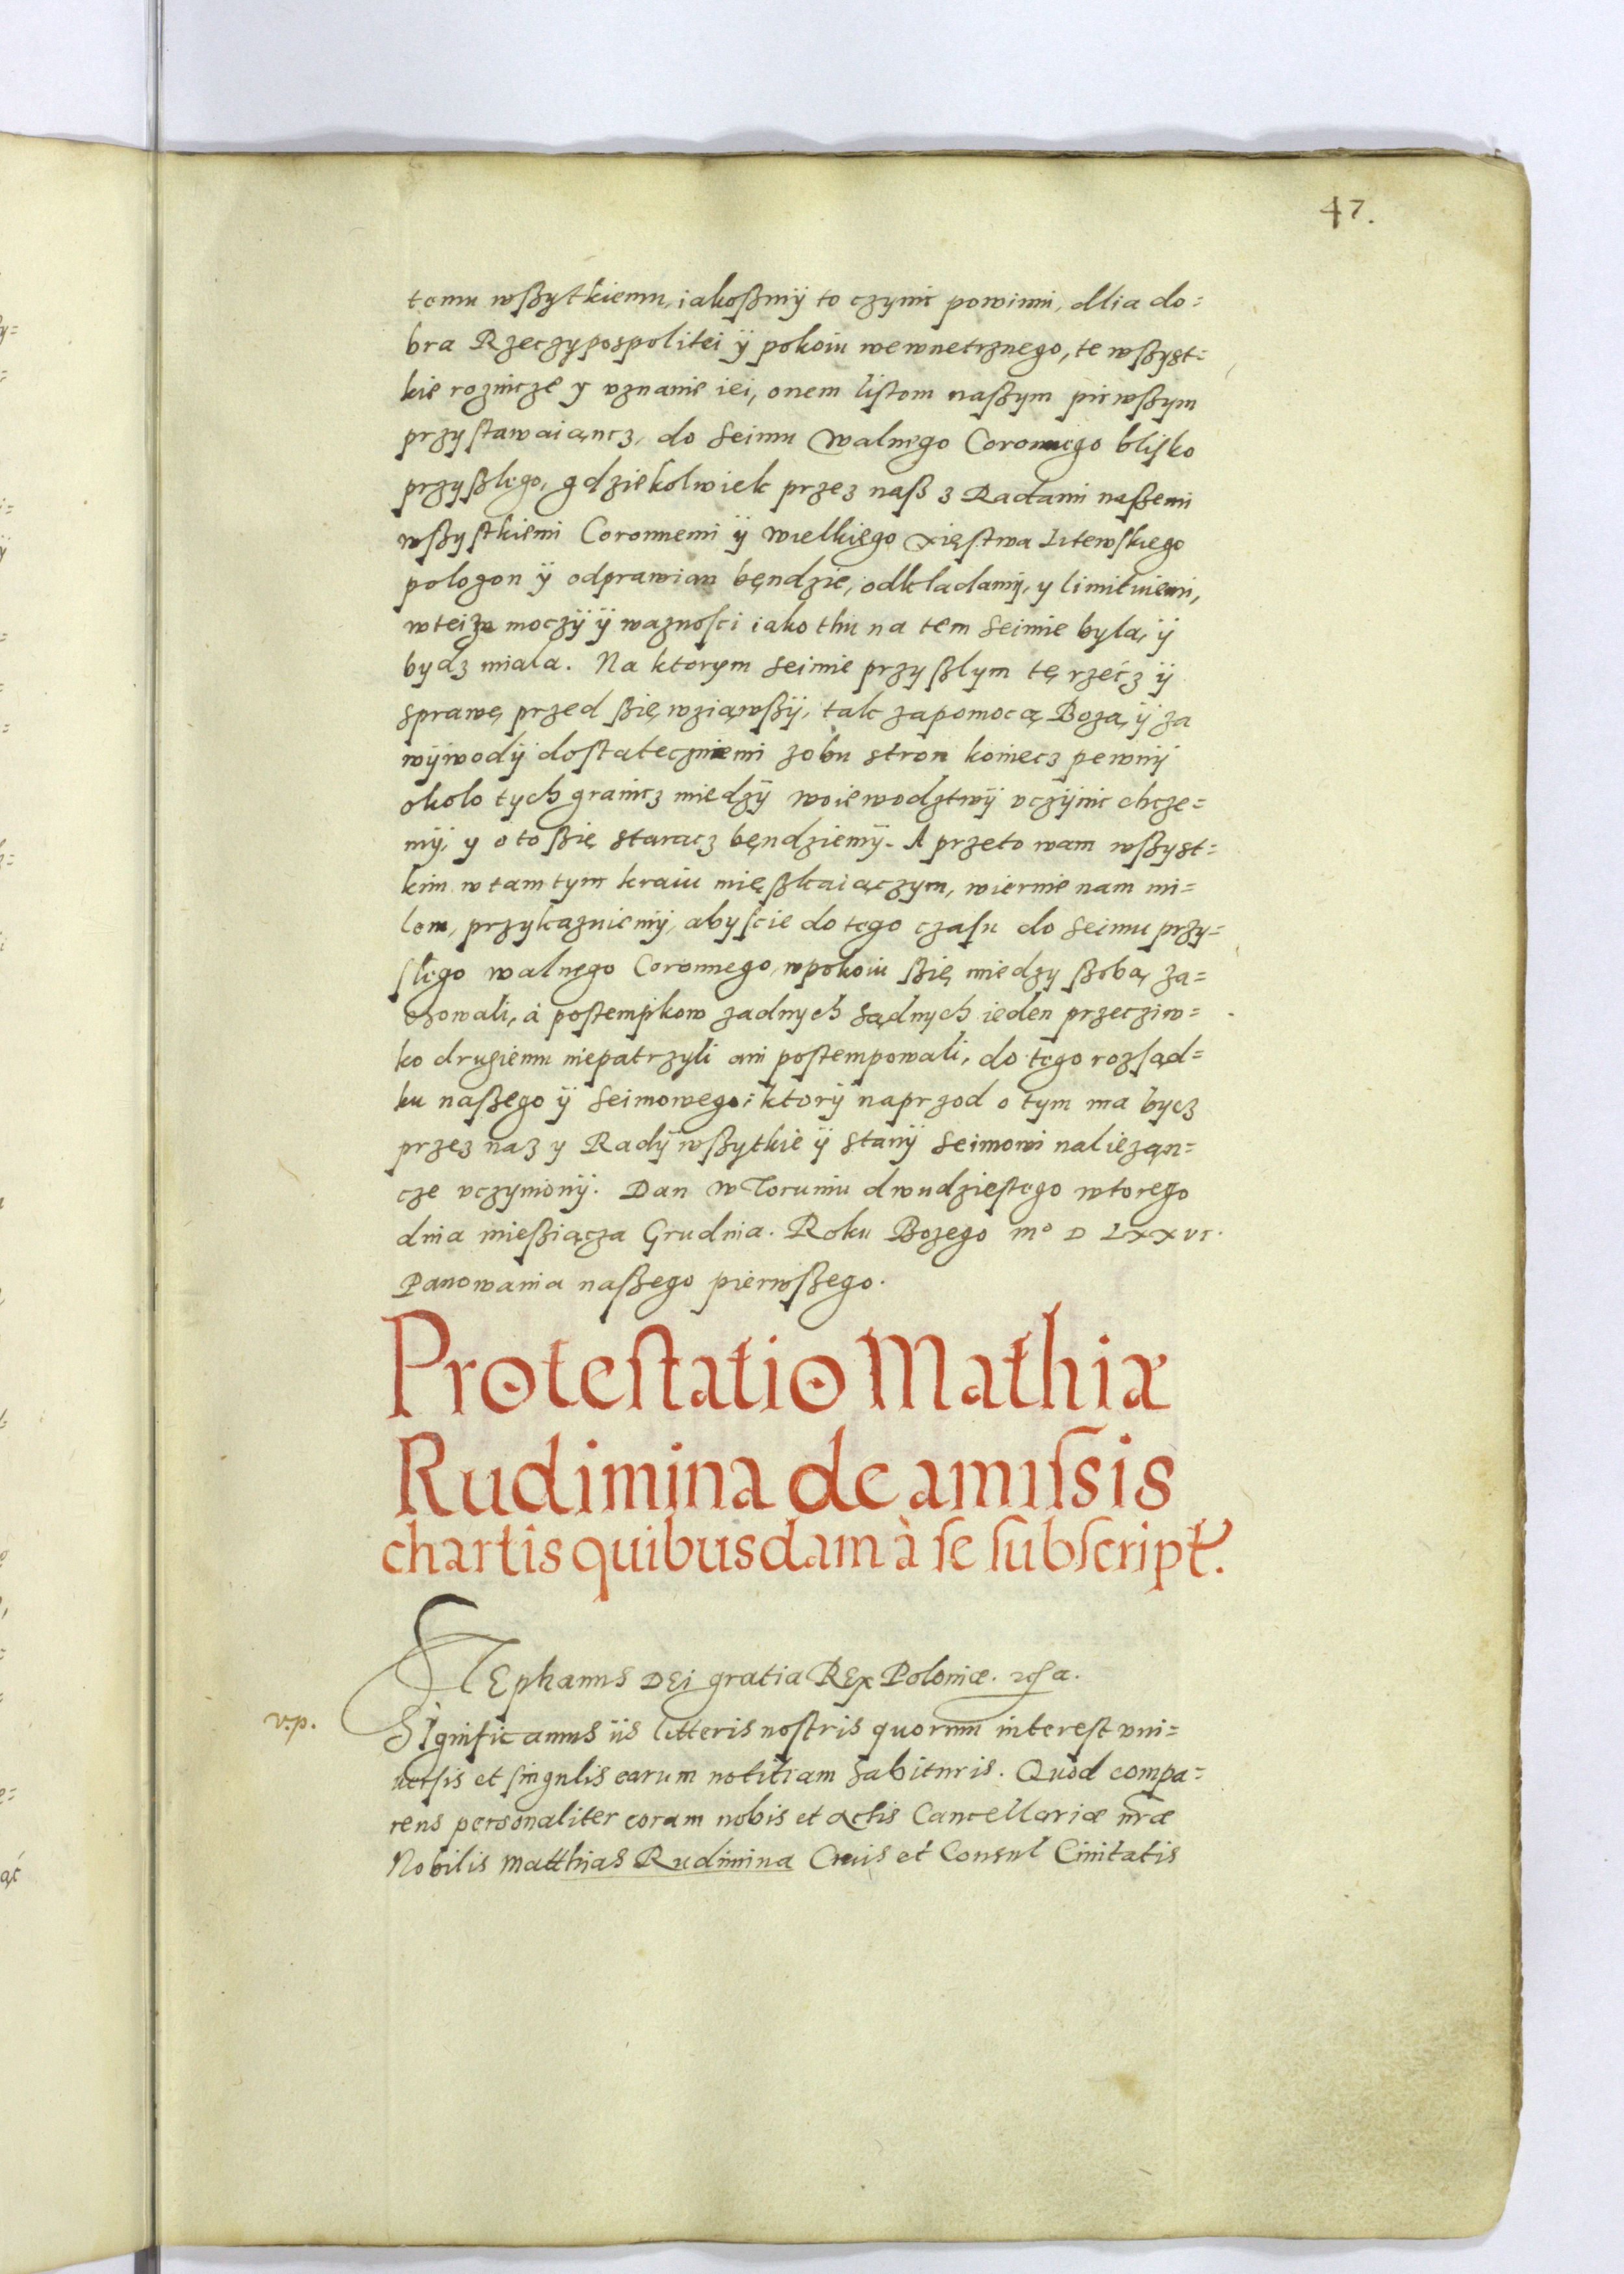 47.
temu wßytkiemu, iakoßmÿ to czynić powinni, dlia do=
bra Rzeczypospolitei ÿ pokoiu wewnetrznego, te wßyst=
kie roznicze y vznanie iei, onem listom naßym pirwßym
przystawaiąncz, do Seimu walnego Coronnego blisko
przyßlego, gdziekolwiek przez naß z Radami naßemi
wßystkiemi Coronnemi ÿ wielkięgo xięstwa Litewskiego
polozon ÿ odprawian bęndzie, odkladamÿ, y limituiemi,
wteize moczÿ ÿ waznosci iako thu na tem Seimie byla, ÿ
bydz miala. Na ktorym seimie przyßlym tę rzecz ÿ
sprawę przed ßię wziąwßÿ, tak zapomocą Bozą ÿ za
wÿwodÿ dostatecznemi zobu stron koniecz pewnÿ
okolo tych granicz miedzÿ woiewodztwÿ vczÿnic chcze=
mÿ, y o to ßię staracz bęndziemÿ. A przeto wam wßyst=
kim w tamtym kraiu mięßkaiączym, wiernie nam mi=
lem, przykazuiemÿ, abyscie do tego czasu do Seimu przy=
slego walnego Coronnego, wpokoiu ßię miedzy ßobą za=
chowali, à postempkow zadnych sądnych ieden przeciw=
ko drugiemu niepatrzyli ani postempowali, do tego rozsąd=
ku naßego ÿ Seimowego: ktorÿ naprzod o tym ma bycz
przez naz y Radÿ wßytkie ÿ stanÿ Seimowi naliezan=
cze vczynionÿ. Dan w Toruniu dwudziestego wtorego
dnia mießiącza Grudnia. Roku Bozego mº D LXXVI.
Panowania naßego pierwßego.
Protestatio Mathiæ
Rudimina de amissis
chartis quibusdam à se subscript.
STEphanus DEi gratia REx Poloniæ. etca.
v.p.
SIgnificamus iis litteris nostris quorum interest vni=
uersis et singulis earum notitiam habituris. Quod compa=
rens personaliter coram nobis et Actis Cancellariæ nræ
Nobilis Matthias Rudimina Ciuis et Consul Ciuitatis